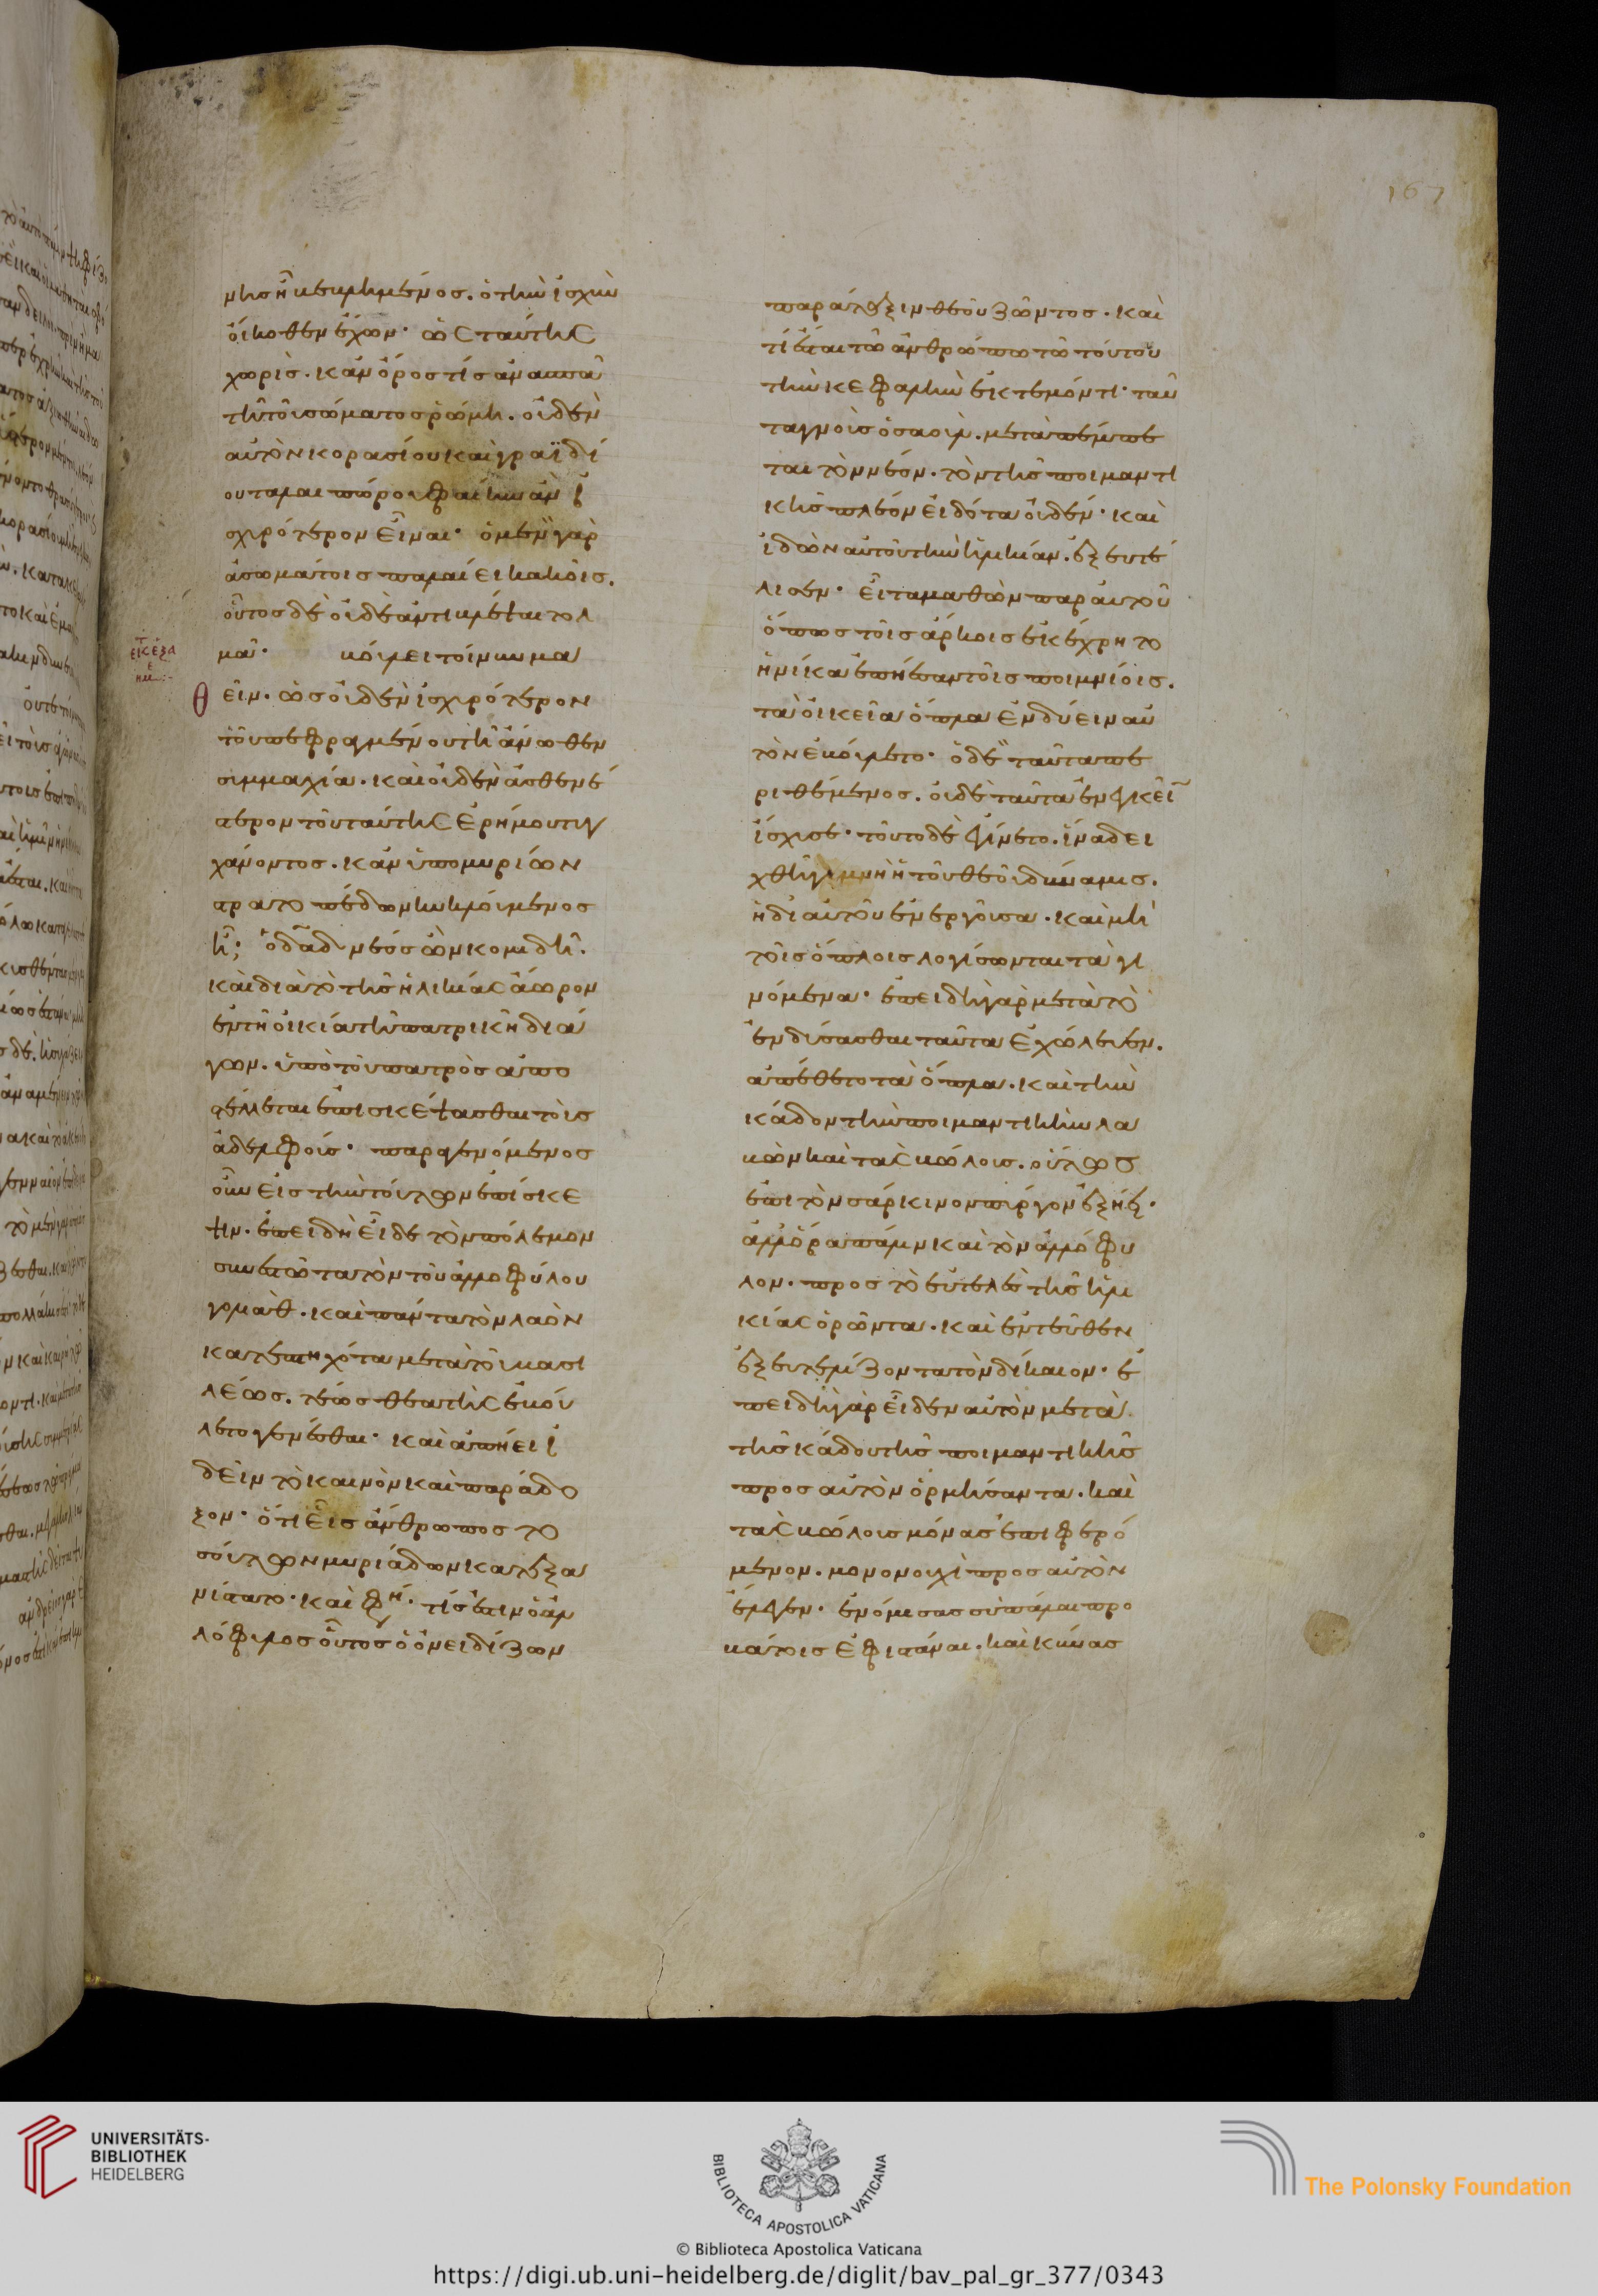 167
νης ἢ κεκλημένος. ὁ τὴν ἰσχὺν
οἴκοθεν ἔχων· ὡς ταύτης
χωρὶς. κἂν ὄρος τίς ἀνασπᾶ
τῆ τοῦ σώματος ῥώμη. οὐδὲν
αὐτὸν κορασίου καὶ γραϊδί
ου ταλαιπώρου φαίην ἂν ἰ
σχυρότερον εἶναι· ὁ μὲν γὰρ
ἀσωμάτοις παλαίει κακοῖς.
οὗτος δὲ οὐδὲ ἀντιβλέψαι τολ
μᾶ· βούλει τοίνυν μα
θεῖν. ὡς οὐδὲν ἰσχυρότερον
τοῦ πεφραγμένου τῆ ἄνωθεν
συμμαχία. καὶ οὐδὲν ἀσθενέ
στερον τοῦ ταύτης ἐρήμου τυγ
χάνοντος. κἂν ὑπὸ μυρίων
στρατοπέδων κυκλούμενος
ἦ; ὁ δᾱδ νέος ὢν κομιδῆ.
καὶ διὰ τὸ τῆς ἡλικίας ἄωρον
ἐν τῆ οἰκία τῆ πατρικῆ διά
γων. ὑπὸ τοῦ πατρὸς ἀπο
στέλλεται ἐπισκέψασθαι τοὺς
ἀδελφούς· παραγενόμενος
οὖν εἰς τὴν τούτων ἐπίσκε
ψιν. ἐπειδὴ εἶδε τὸν πόλεμον
συνεστῶτα τὸν τοῦ ἀλλοφύλου
γολιὰθ. καὶ πάντα τὸν λαὸν
κατεπτηχότα μετὰ τοῦ βασι
λέως. τέως θεατὴς ἐβού
λετο γενέσθαι· καὶ ἀπήει ἰ
δεῖν τὸ καινὸν καὶ παράδο
ξον· ὅτι εἷς ἄνθρωπος το
σούτων μυριάδων κατεξα
νίστατο. καὶ φη. τίς ἐστιν ὁ ἀλ
λόφυλος οὗτος ὁ ὀνειδίζων
παράταξιν θεοῦ ζῶντος. καὶ
τί ἔσται τῶ ἀνθρώπω τῶ τούτου
τὴν κεφαλὴν ἐκτεμόντι· ταῦ
τα γνοὺς ὁ σαούλ. μεταπέμπε
ται τὸν νέον. τὸν τῆς ποιμαντι
κῆς πλέον εἰδότα οὐδέν· καὶ
ἰδὼν αὐτοῦ τὴν ἡλικίαν. ἐξευτέ
λισεν· εἶτα μαθὼν παρ αὐτοῦ
ὅπως τοῖς ἄρκοις ἐκέχρητο
ἡνίκα ἐπήεσαν τοῖς ποιμνίοις.
τὰ οἰκεῖα ὅπλα ἐνδύειν αὐ
τὸν ἐβούλετο· ὁ δὲ ταῦτα πε
ριθέμενος. οὐδὲ ταῦτα ἐνεγκεῖ̄
ἴσχυσε· τοῦτο δὲ ἐγίνετο. ἵνα δει
χθῆ γυμνὴ ἡ τοῦ θεοῦ δύναμις.
ἡ δι αὐτοῦ ἐνεργοῦσα. καὶ μὴ
τοῖς ὅπλοις λογίσωνται τὰ γι
νόμενα· ἐπειδὴ γὰρ μετὰ τὸ
ἐνδύσασθαι ταῦτα ἐχώλευεν.
ἀπέθετο τὰ ὅπλα. καὶ τὴν
κάδον τὴν ποιμαντικὴν λα
βὼν καὶ τὰς βώλους. οὕτως
ἐπι τὸν σάρκινον πύργον ἐξήει·
ἀλλ ὅρα πάλιν καὶ τὸν ἀλλόφυ
λον. προς τὸ εὐτελὲς τῆς ἡλι
κίας ὁρῶντα. καὶ ἐντεῦθεν
ἐξευτελίζοντα τὸν δίκαιον· ἐ
πειδὴ γὰρ εἶδεν αὐτὸν μετὰ
τῆς κάδου τῆς ποιμαντικῆς
προς αὐτὸν ὁρμήσαντα. καὶ
τὰς βώλους μόνας ἐπιφερό
μενον. μονονουχὶ προς αὐτὸν
ἔλεγεν· ἐνόμισας σὺ πάλαι προ
βάτοις ἐφιστάναι. καὶ κύνας
UNIVERSITÄTS-
BIBLIOTHEK
HEIDELBERG
BIBLIOTECA APOSTOLICA VATICANA
The Polonsky Foundation
© Biblioteca Apostolica Vaticana
https://digi.ub.uni-heidelberg.de/diglit/bav_pal_gr_377/0343